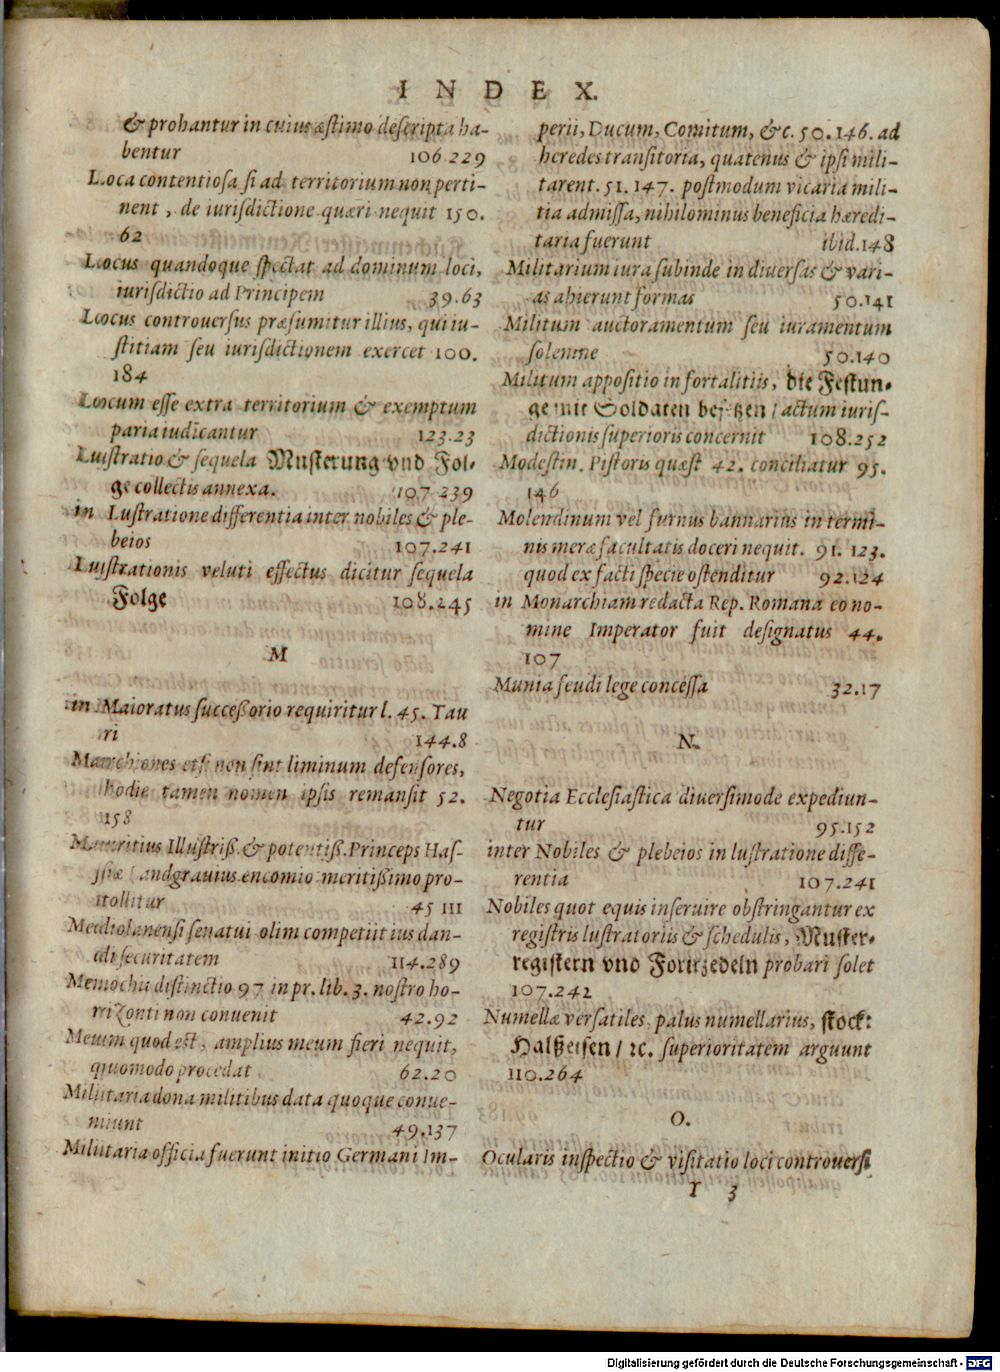 INDEX.
& probantur in cuius æstimo descripta ha-
bentur 106 229
Loca contentiosa si ad territorium non perti-
nent, de iurisdictione quæri nequit 150.
62
Locus quandoque spectat ad dominum loci,
iurisdictio ad Principem 39.63
Locus controuersus præsumitur illius, qui iu-
stitiam seu iurisdictionem exercet 100.
184
Locum esse extra territorium & exemptum
paria iudicantur 123.23
Lustratio & sequela Musterung vnd Fol-
ge collectis annexa. 107 239
in Lustratione differentia inter nobiles & ple-
beios 107.241
Lustrationis veluti effectus dicitur sequela
Folge 108.245
M
in Maioratus successorio requiritur l. 45. Tau
ri 144.8
Marchiones etsi non sint liminum defensores,
hodie tamen nomen ipsis remansit 52.
158
Mauritius Illustriß. & potentiß. Princeps Has-
siæ Landgrauius encomio meritißimo pro-
tollitur 45 111
Mediolanensi senatui olim competiit ius dan-
di securitatem 114.289
Menochii distinctio 97 in pr. lib. 3. nostro ho-
rrizonti non conuenit 42.92
Meum quod est, amplius meum fieri nequit,
quomodo procedat 62.20
Militaria dona militibus data quoque conue-
niunt 49.137
Militaria officia fuerunt initio Germani Im-
perii, Ducum, Comitum, &c. 50.146. ad
heredes transitoria, quatenus & ipsi mili-
tarent. 51. 147. postmodum vicaria mili-
tia admissa, nihilominus beneficia hæredi-
taria fuerunt ibid.148
Militarium iura subinde in diuersas & vari-
as abierunt formas 50.141
Militum auctoramentum seu iuramentum
solenne 50.140
Militum appositio in fortalitiis, die Festun-
ge mit Soldaten besetzen / actum iuris-
dictionis superioris concernit 108.252
Modestin. Pistoris quæst 42. conciliatur 95.
146
Molendinum vel furnus bannarius in termi-
nis meræ facultatis doceri nequit. 91. 123.
quod ex facti specie ostenditur 92.124
in Monarchiam redacta Rep. Romana eo no-
mine Imperator fuit designatus 44.
107
Munia feudi lege concessa 32.17
N.
Negotia Ecclesiastica diuersimode expediun-
tur 95.152
inter Nobiles & plebeios in lustratione diffe-
rentia 107.241
Nobiles quot equis inseruire obstringantur ex
registris lustratoriis & schedulis, Muster-
registern vnd Forirzedeln probari solet
107.242
Numellæ versatiles, palus numellarius, stock:
Halßeisen / ꝛc. superioritatem arguunt
110.264
O.
Ocularis inspectio & visitatio loci controuersi
Y 3
Digitalisierung gefördert durch die Deutsche Forschungsgemeinschaft - DFG